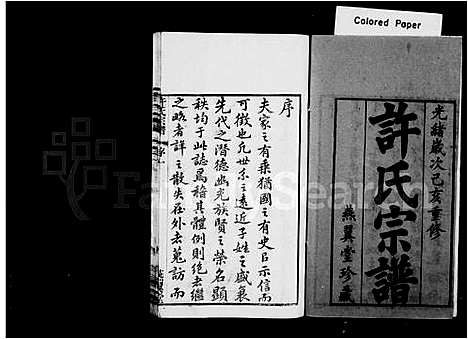 Colored Paper
光緒歲次己亥重修
許氏宗譜
燕翼堂珍藏
序
夫家之有乘猶國之有史以示信而
可徵也凡世系之遠近子姓之盛衰
先代之潛德幽光族賢之榮名顯
秩均于此誌焉稽其體例則絕者繼
之略者詳之散失在外者蒐訪而